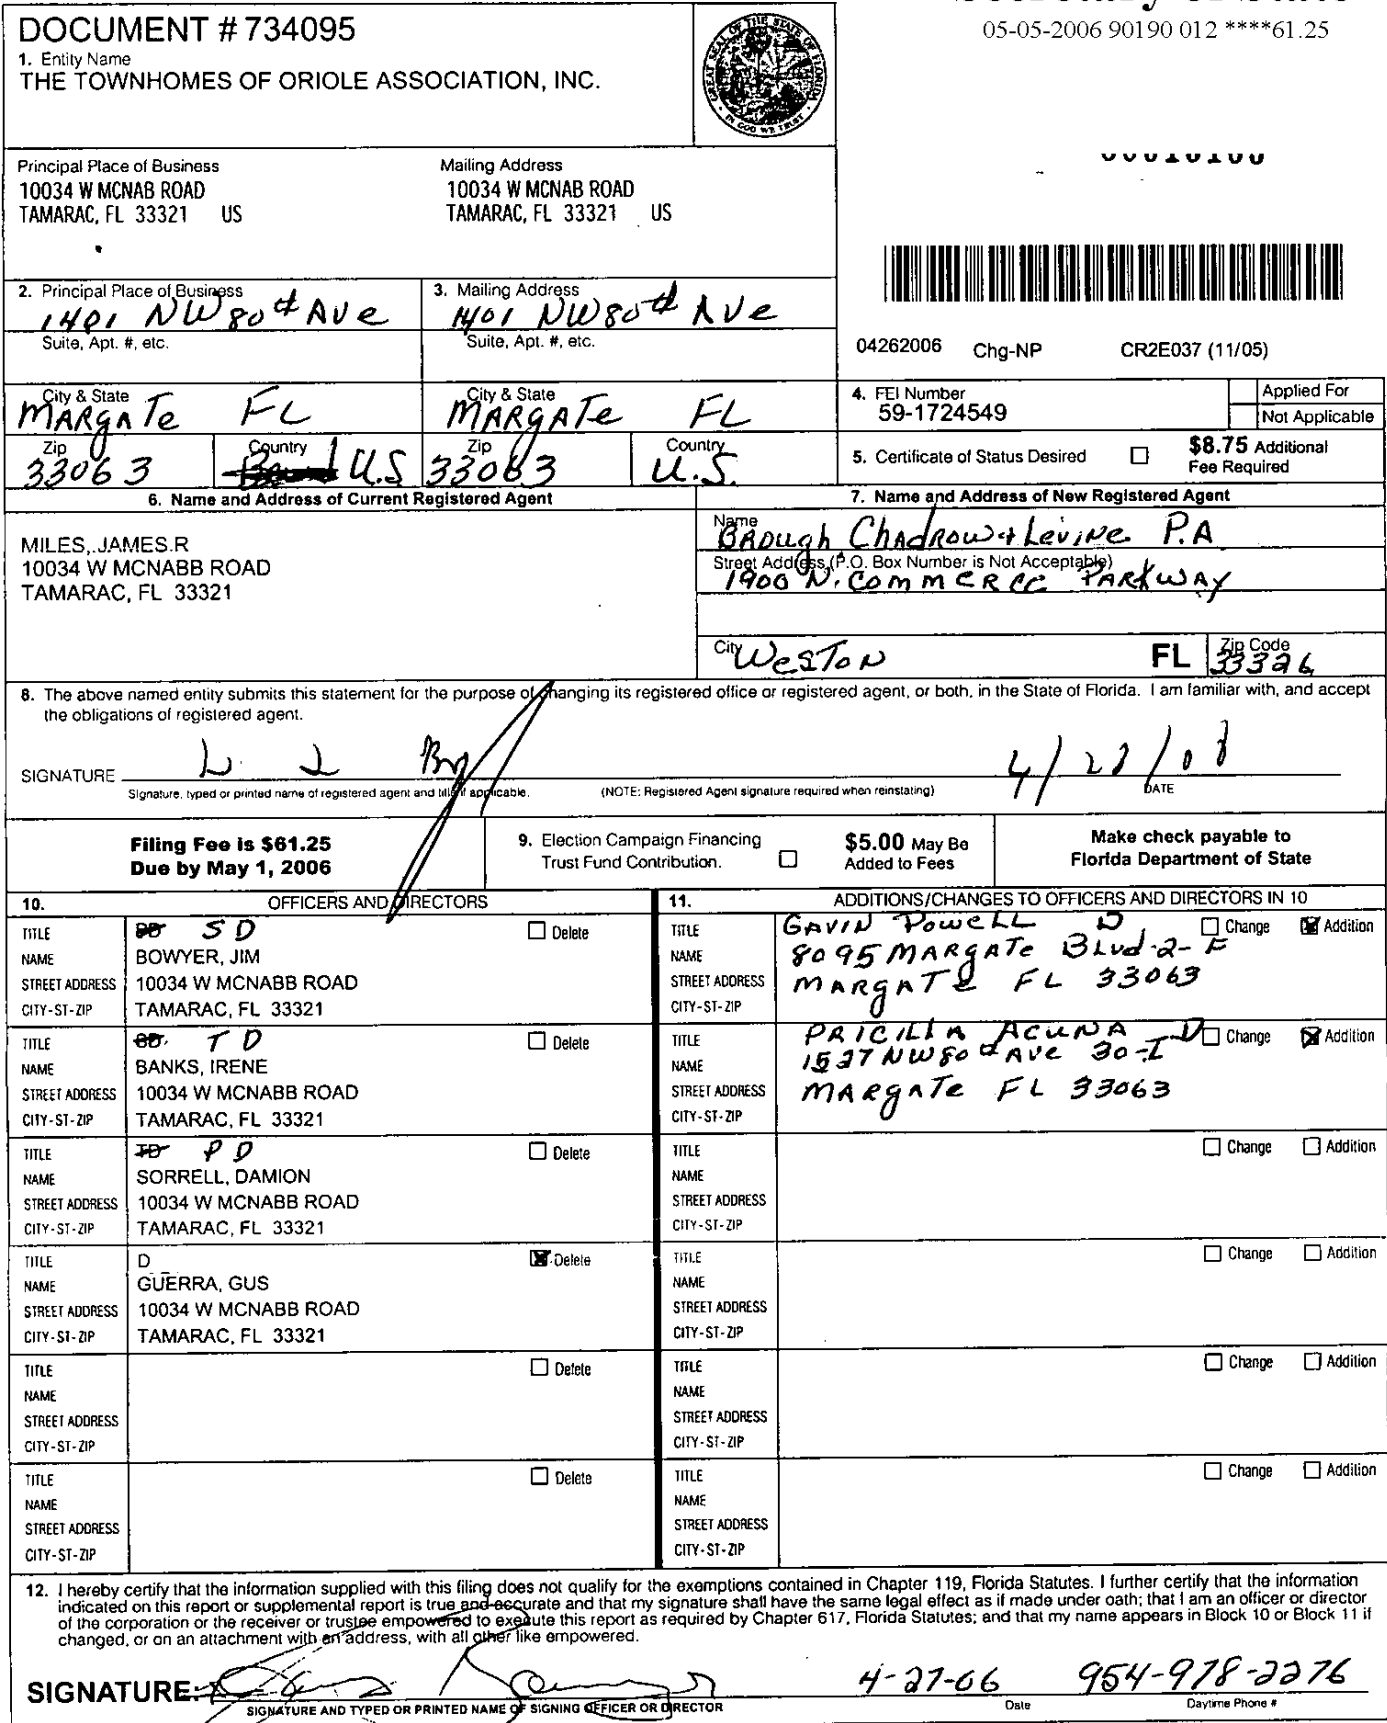 DOCUMENT # 734095
1. Entity Name
THE TOWNHOMES OF ORIOLE ASSOCIATION, INC.
GREAT SEAL OF THE STATE OF FLORIDA
IN GOD WE TRUST
05-05-2006 90190 012 ****61.25
Principal Place of Business
10034 W MCNAB ROAD
TAMARAC, FL 33321 US
Mailing Address
10034 W MCNAB ROAD
TAMARAC, FL 33321 US
2. Principal Place of Business
1401 NW 80th Ave
Suite, Apt. #, etc.
City & State
MARgATe FL
Zip
33063
Country
U.S
3. Mailing Address
1401 NW 80th Ave
Suite, Apt. #, etc.
City & State
MARgATe FL
Zip
33063
Country
U.S.
04262006 Chg-NP CR2E037 (11/05)
4. FEI Number
59-1724549
Applied For
Not Applicable
5. Certificate of Status Desired
$8.75 Additional
Fee Required
6. Name and Address of Current Registered Agent
MILES, JAMES R
10034 W MCNABB ROAD
TAMARAC, FL 33321
7. Name and Address of New Registered Agent
Name
BRough Chadrow + Levine P.A
Street Address (P.O. Box Number is Not Acceptable)
1900 N. Commerce PARKWAY
City
WesToN
FL
Zip Code
33326
8. The above named entity submits this statement for the purpose of changing its registered office or registered agent, or both, in the State of Florida. I am familiar with, and accept
the obligations of registered agent.
SIGNATURE
Signature, typed or printed name of registered agent and title if applicable.
(NOTE: Registered Agent signature required when reinstating)
DATE
Filing Fee is $61.25
Due by May 1, 2006
9. Election Campaign Financing
Trust Fund Contribution.
$5.00 May Be
Added to Fees
Make check payable to
Florida Department of State
10. OFFICERS AND DIRECTORS
TITLE SD Delete
NAME BOWYER, JIM
STREET ADDRESS 10034 W MCNABB ROAD
CITY-ST-ZIP TAMARAC, FL 33321
TITLE TD Delete
NAME BANKS, IRENE
STREET ADDRESS 10034 W MCNABB ROAD
CITY-ST-ZIP TAMARAC, FL 33321
TITLE PD Delete
NAME SORRELL, DAMION
STREET ADDRESS 10034 W MCNABB ROAD
CITY-ST-ZIP TAMARAC, FL 33321
TITLE D Delete
NAME GUERRA, GUS
STREET ADDRESS 10034 W MCNABB ROAD
CITY-ST-ZIP TAMARAC, FL 33321
TITLE Delete
NAME
STREET ADDRESS
CITY-ST-ZIP
TITLE Delete
NAME
STREET ADDRESS
CITY-ST-ZIP
11. ADDITIONS/CHANGES TO OFFICERS AND DIRECTORS IN 10
TITLE GAVIN POWELL D Change Addition
NAME 8095 MARgATe Blvd-2-F
STREET ADDRESS MARgATe FL 33063
CITY-ST-ZIP
TITLE PRICILIA ACUNA D Change Addition
NAME 1527 NW 80th Ave 30-I
STREET ADDRESS MARgATe FL 33063
CITY-ST-ZIP
TITLE Change Addition
NAME
STREET ADDRESS
CITY-ST-ZIP
TITLE Change Addition
NAME
STREET ADDRESS
CITY-ST-ZIP
TITLE Change Addition
NAME
STREET ADDRESS
CITY-ST-ZIP
TITLE Change Addition
NAME
STREET ADDRESS
CITY-ST-ZIP
12. I hereby certify that the information supplied with this filing does not qualify for the exemptions contained in Chapter 119, Florida Statutes. I further certify that the information
indicated on this report or supplemental report is true and accurate and that my signature shall have the same legal effect as if made under oath; that I am an officer or director
of the corporation or the receiver or trustee empowered to execute this report as required by Chapter 617, Florida Statutes; and that my name appears in Block 10 or Block 11 if
changed, or on an attachment with an address, with all other like empowered.
SIGNATURE: 4-27-06 954-978-2276
SIGNATURE AND TYPED OR PRINTED NAME OF SIGNING OFFICER OR DIRECTOR Date Daytime Phone #